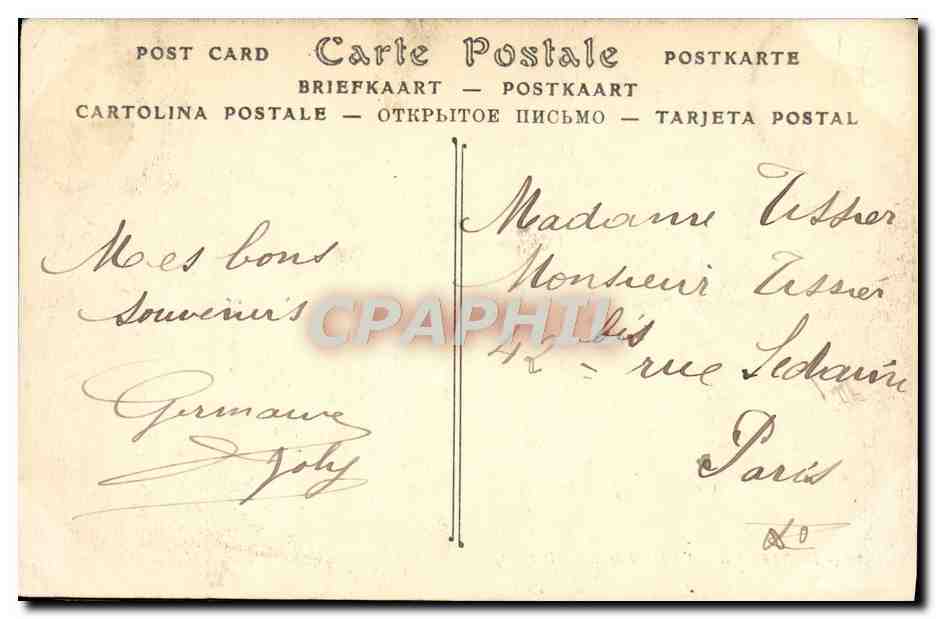 POST CARD Carte Postale POSTKARTE
BRIEFKAART — POSTKAART
CARTOLINA POSTALE — ОТКРЫТОЕ ПИСЬМО — TARJETA POSTAL
Mes bons
souvenirs
Germaine
Joly
Madame Tissier
Monsieur Tissier
42 bis rue Sedaine
Paris
CPAPHIL